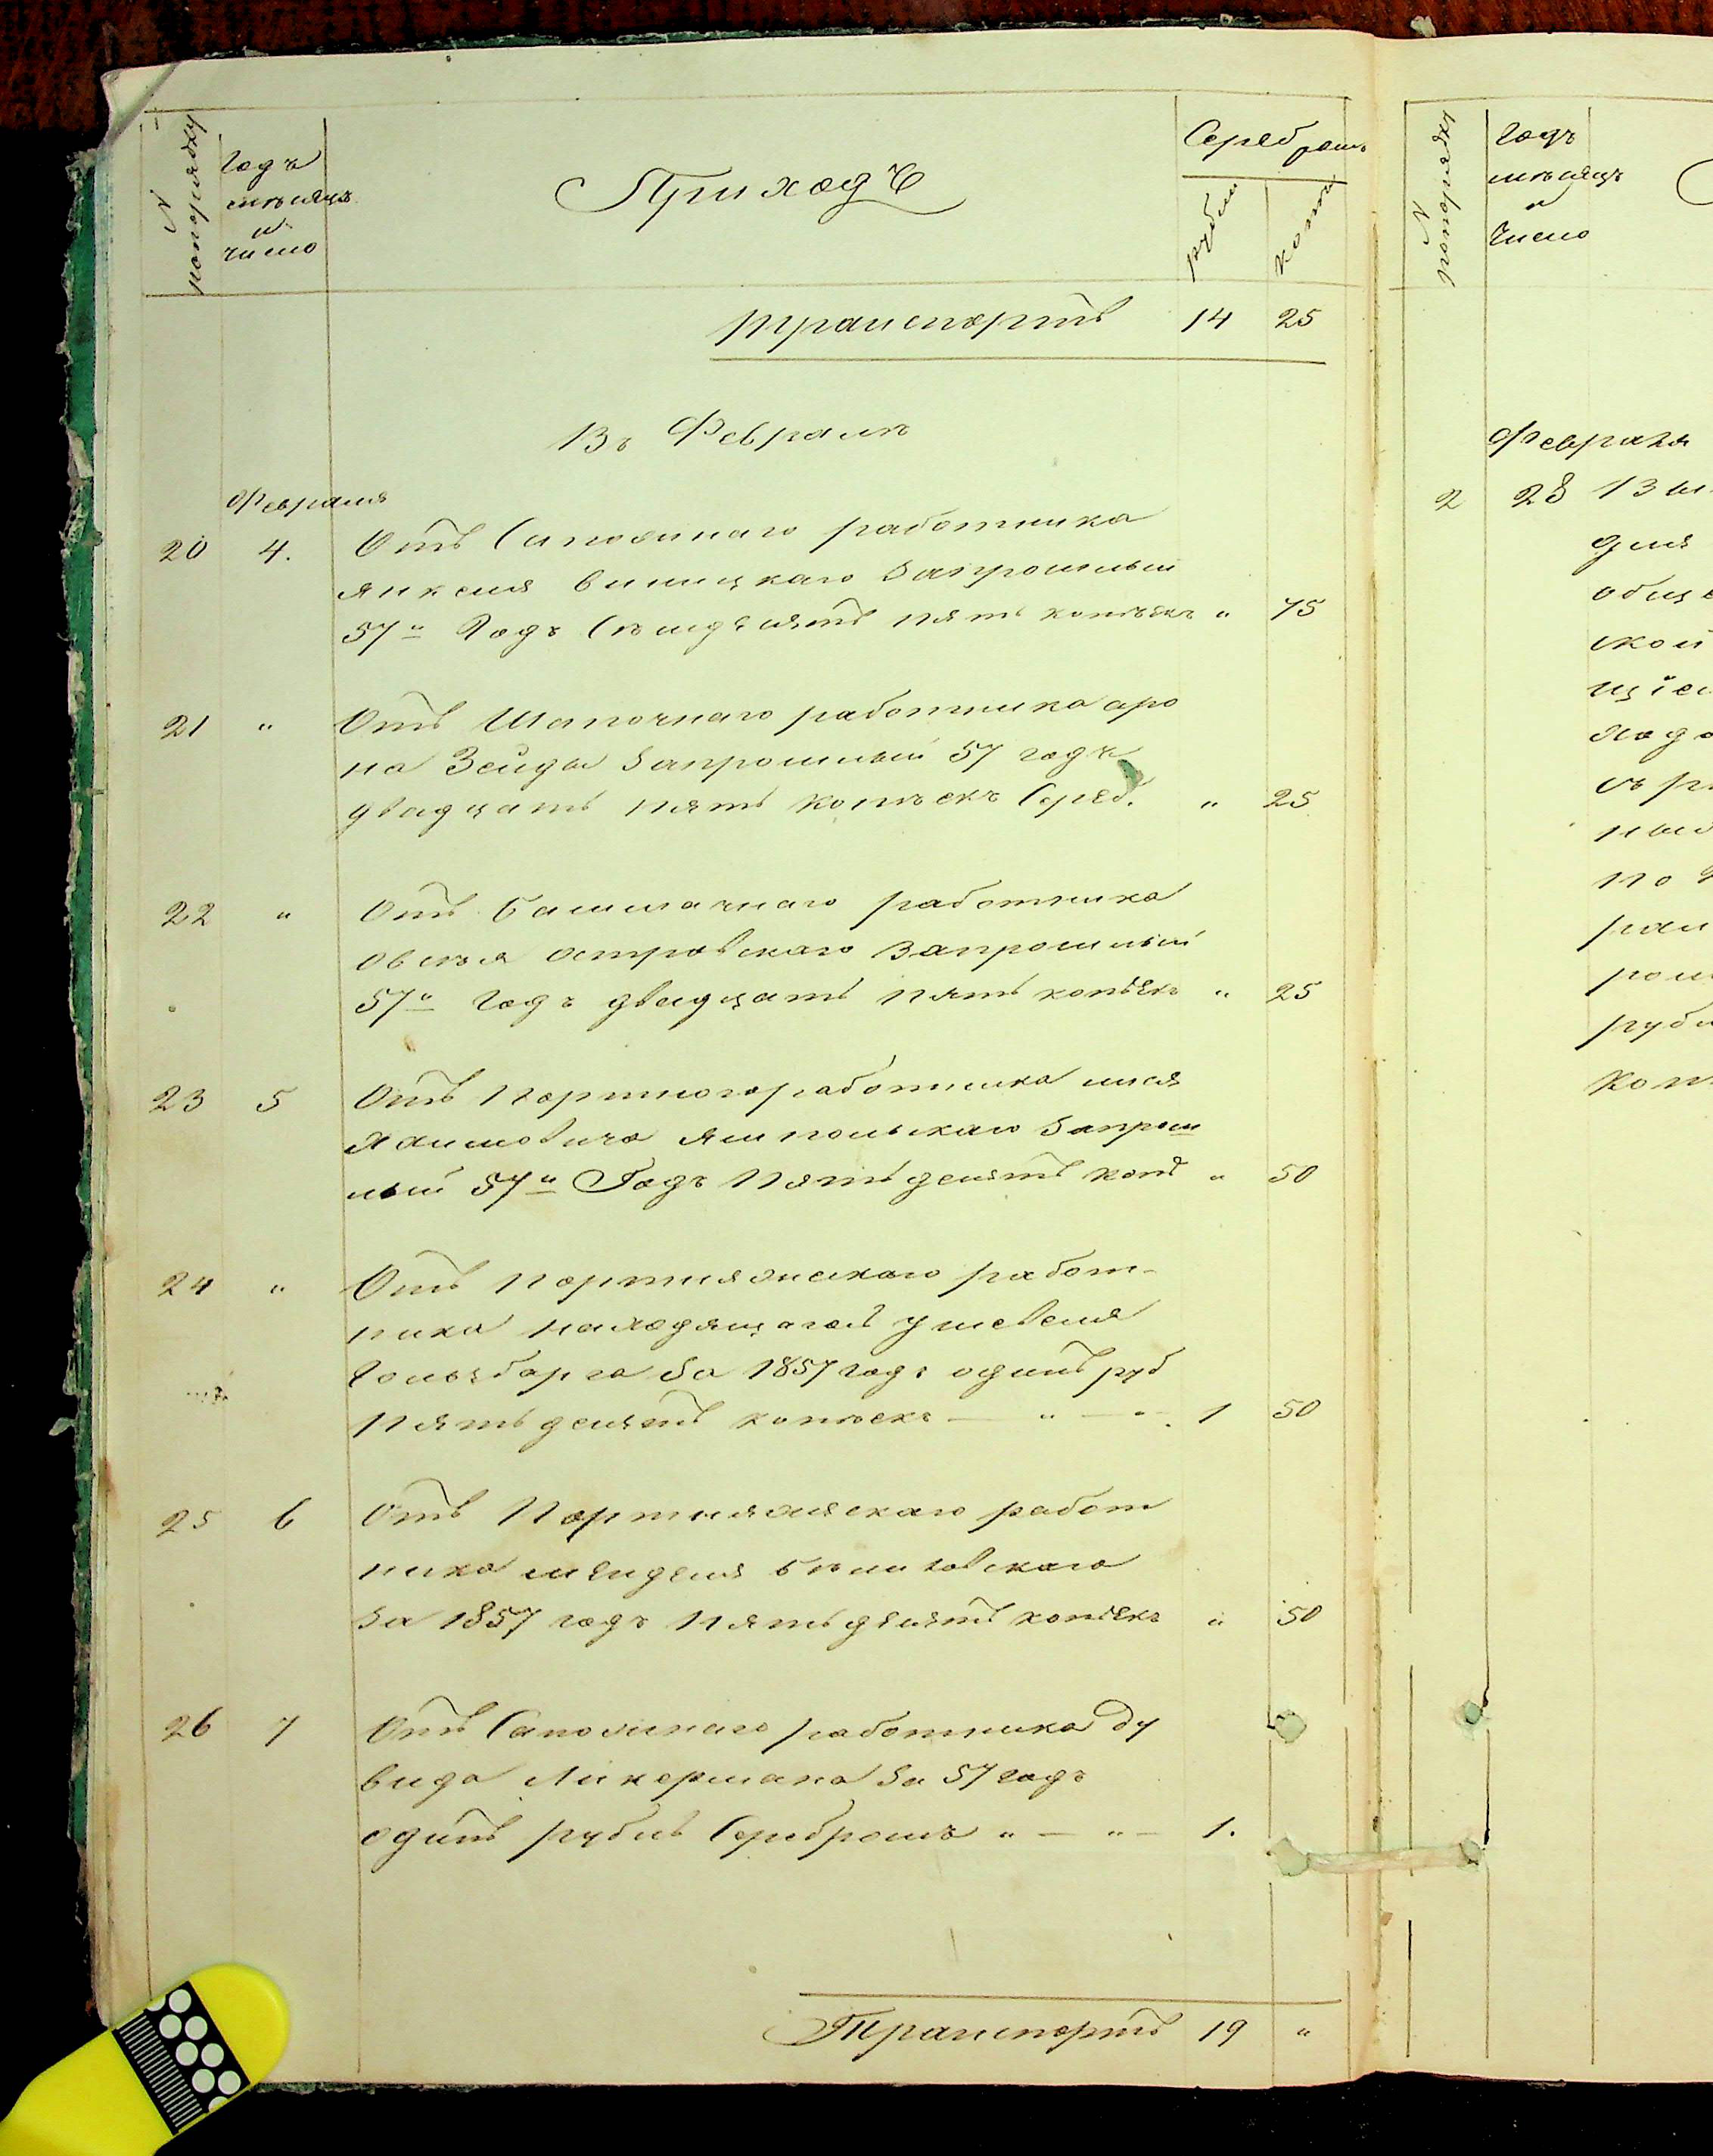 N попорядку
Годъ мѣсяцъ и число
Приходъ
Серебромъ
рубли
копѣ
Транспортъ 14 25
Въ Февралѣ
Февраля
20 4. Отъ Сапожнаго работника
Янкеля Виницкаго Запрошлый
57й Годъ Семьдесятъ пять копѣекъ " 75
21 " Отъ Шапочнаго работника Аро
на Зейды Запрошлый 57 годъ
двадцать пять копѣекъ Сереб. " 25
22 " Отъ Башмачнаго работника
Овсѣя Островскаго Запрошлый
57й Годъ двадцать пять копѣекъ " 25
23 5 Отъ Портногоработника
Ямпольскаго Запрош
лый 57й Годъ Пятьдесятъ копѣ " 50
24 " Отъ Портняжскаго работ-
ника находящагось у Шевеля
Гольдбарга За 1857 годъ одинъ руб
Пятьдесятъ копѣекъ — " — " 1 50
25 6 Отъ Портняжскаго работ
ника Менделя
За 1857 годъ Пятьдесятъ копѣекъ " 50
26 7 Отъ Сапожнаго работника Ду
вида Ликермана За 57 годъ
одинъ рубль Серебромъ " — " — 1.
Транспортъ 19 "
N попорядку
Годъ
мѣсяцъ
и
Число
Февраля
2 28
для
обще
ской
по
руб
Коп